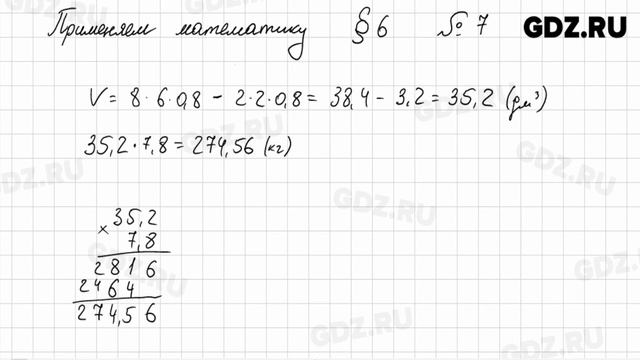 Применяем математику § 6 № 7 GDZ.RU
V = 8 · 6 · 0,8 − 2 · 2 · 0,8 = 38,4 − 3,2 = 35,2 (дм³)
35,2 · 7,8 = 274,56 (кг)
× 35,2
7,8
2816
2464
274,56
GDZ.RU
GDZ.RU
GDZ.RU
GDZ.RU
GDZ.RU
GDZ.RU
GDZ.RU
GDZ.RU